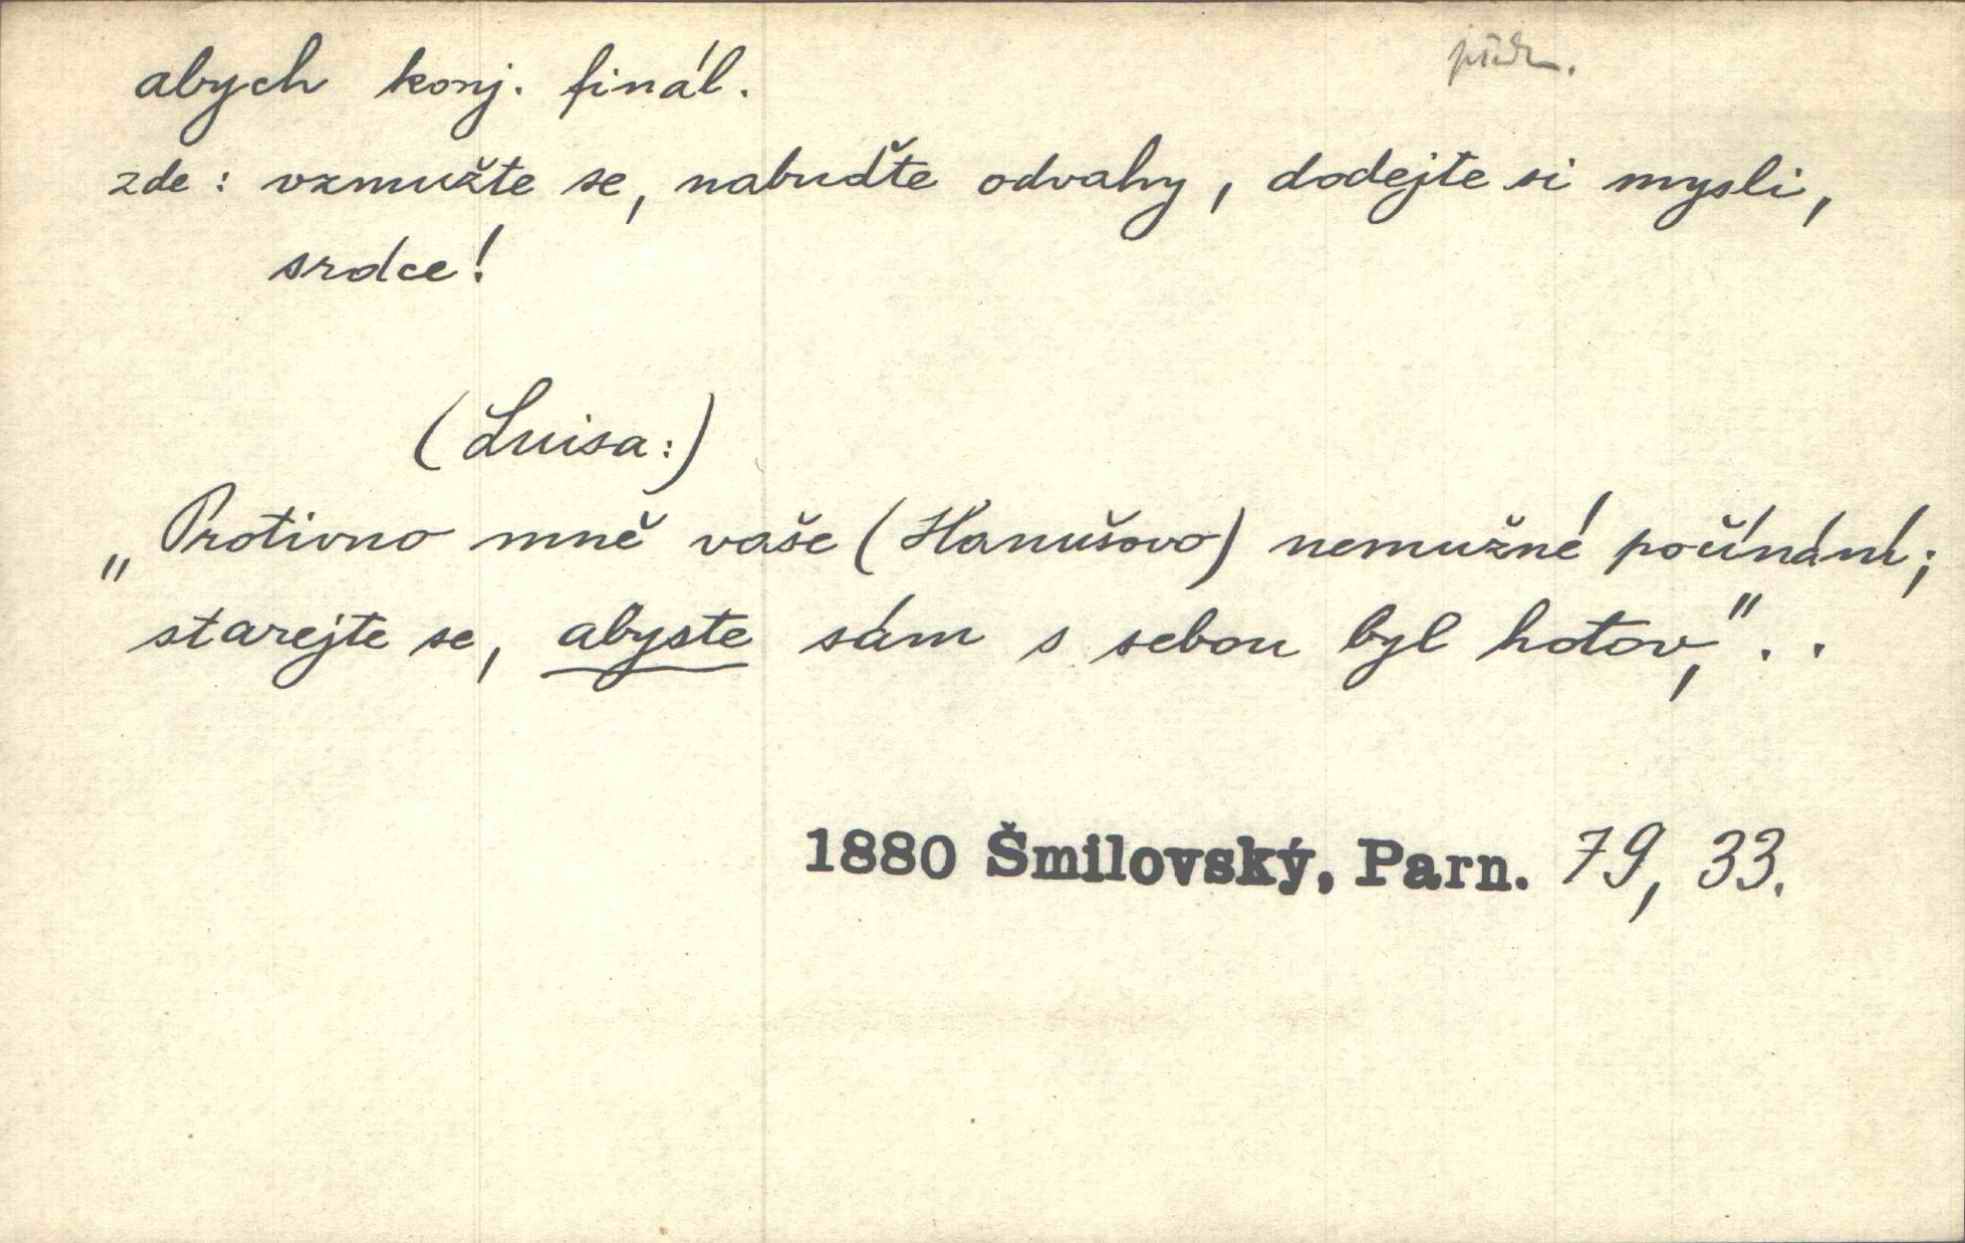 abych konj. finál.
zde: vzmužte se, nabuďte odvahy, dodejte si mysli,
srdce!
(Luisa:)
„Protivno mně vaše (Hanušovo) nemužné počínání;
starejte se, abyste sám s sebou byl hotov,"..
1880 Šmilovský, Parn. 79, 33.